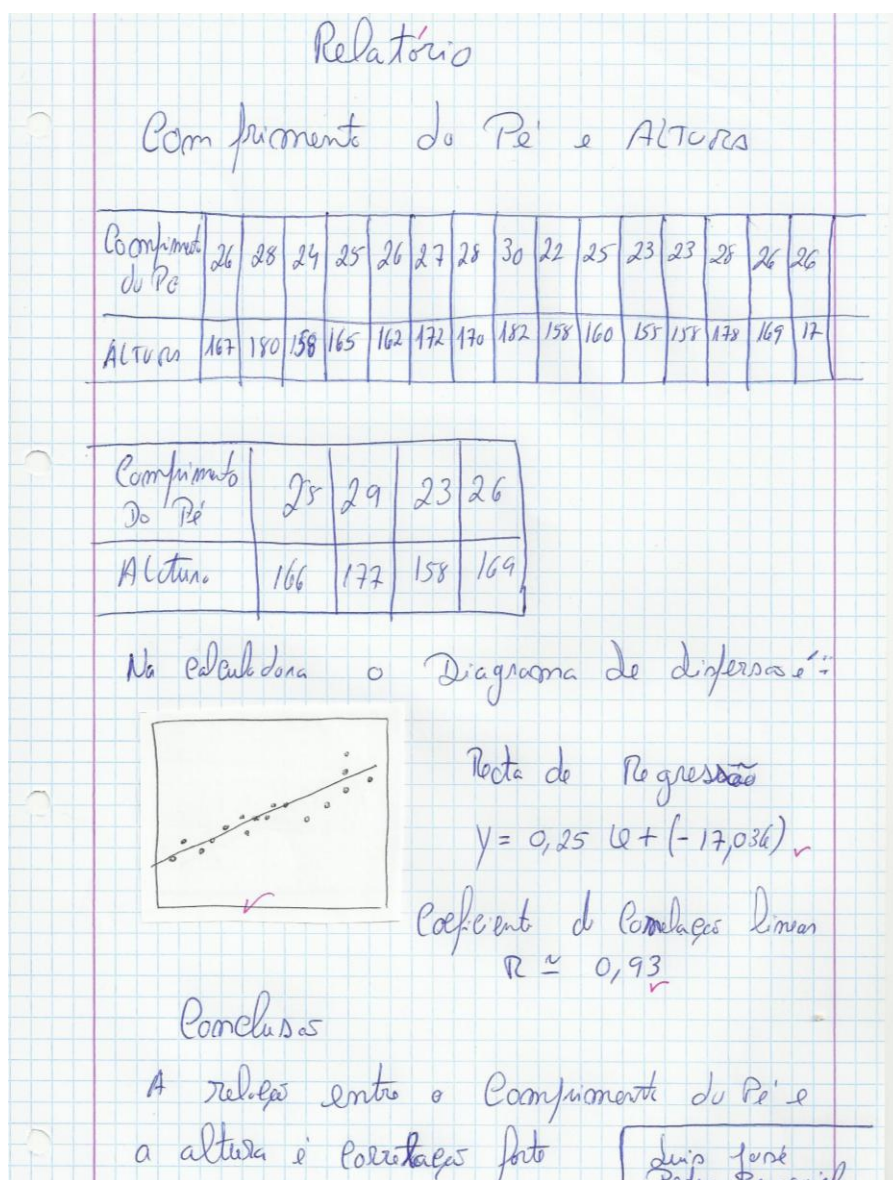 Relatório
Comprimento do Pé e ALTURA
Comprimento do Pé 26 28 24 25 26 27 28 30 22 25 23 23 28 26 26
ALTURA 167 180 158 165 162 172 170 182 158 160 155 158 178 169 17
Comprimento Do Pé 25 29 23 26
Altura 166 177 158 169
Na calculadora o Diagrama de dispersão é:
Recta de Regressão
y = 0,25 x + (-17,036)
Coeficient d Correlação linear
R ≃ 0,93
Conclusão
A relação entre o Comprimento do Pé e
a altura é correlação forte
Luis José